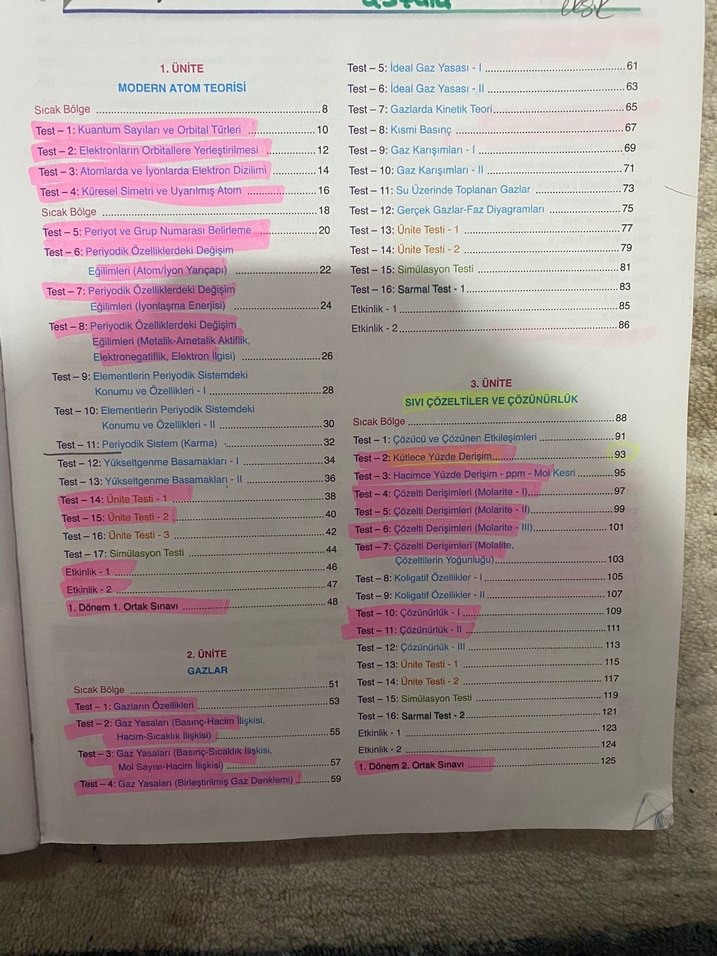 1. ÜNİTE
MODERN ATOM TEORİSİ
Sıcak Bölge ........ 8
Test – 1: Kuantum Sayıları ve Orbital Türleri ........ 10
Test – 2: Elektronların Orbitallere Yerleştirilmesi ........ 12
Test – 3: Atomlarda ve İyonlarda Elektron Dizilimi ........ 14
Test – 4: Küresel Simetri ve Uyarılmış Atom ........ 16
Sıcak Bölge ........ 18
Test – 5: Periyot ve Grup Numarası Belirleme ........ 20
Test – 6: Periyodik Özelliklerdeki Değişim
Eğilimleri (Atom/İyon Yarıçapı) ........ 22
Test – 7: Periyodik Özelliklerdeki Değişim
Eğilimleri (İyonlaşma Enerjisi) ........ 24
Test – 8: Periyodik Özelliklerdeki Değişim
Eğilimleri (Metalik-Ametalik Aktiflik,
Elektronegatiflik, Elektron İlgisi) ........ 26
Test – 9: Elementlerin Periyodik Sistemdeki
Konumu ve Özellikleri - I ........ 28
Test – 10: Elementlerin Periyodik Sistemdeki
Konumu ve Özellikleri - II ........ 30
Test – 11: Periyodik Sistem (Karma) ........ 32
Test – 12: Yükseltgenme Basamakları - I ........ 34
Test – 13: Yükseltgenme Basamakları - II ........ 36
Test – 14: Ünite Testi - 1 ........ 38
Test – 15: Ünite Testi - 2 ........ 40
Test – 16: Ünite Testi - 3 ........ 42
Test – 17: Simülasyon Testi ........ 44
Etkinlik - 1 ........ 46
Etkinlik - 2 ........ 47
1. Dönem 1. Ortak Sınavı ........ 48
2. ÜNİTE
GAZLAR
Sıcak Bölge ........ 51
Test – 1: Gazların Özellikleri ........ 53
Test – 2: Gaz Yasaları (Basınç-Hacim İlişkisi,
Hacim-Sıcaklık İlişkisi) ........ 55
Test – 3: Gaz Yasaları (Basınç-Sıcaklık İlişkisi,
Mol Sayısı-Hacim İlişkisi) ........ 57
Test – 4: Gaz Yasaları (Birleştirilmiş Gaz Denklemi) ........ 59
Test – 5: İdeal Gaz Yasası - I ........ 61
Test – 6: İdeal Gaz Yasası - II ........ 63
Test – 7: Gazlarda Kinetik Teori ........ 65
Test – 8: Kısmi Basınç ........ 67
Test – 9: Gaz Karışımları - I ........ 69
Test – 10: Gaz Karışımları - II ........ 71
Test – 11: Su Üzerinde Toplanan Gazlar ........ 73
Test – 12: Gerçek Gazlar-Faz Diyagramları ........ 75
Test – 13: Ünite Testi - 1 ........ 77
Test – 14: Ünite Testi - 2 ........ 79
Test – 15: Simülasyon Testi ........ 81
Test – 16: Sarmal Test - 1 ........ 83
Etkinlik - 1 ........ 85
Etkinlik - 2 ........ 86
3. ÜNİTE
SIVI ÇÖZELTİLER VE ÇÖZÜNÜRLÜK
Sıcak Bölge ........ 88
Test – 1: Çözücü ve Çözünen Etkileşimleri ........ 91
Test – 2: Kütlece Yüzde Derişim ........ 93
Test – 3: Hacimce Yüzde Derişim - ppm - Mol Kesri ........ 95
Test – 4: Çözelti Derişimleri (Molarite - I) ........ 97
Test – 5: Çözelti Derişimleri (Molarite - II) ........ 99
Test – 6: Çözelti Derişimleri (Molarite - III) ........ 101
Test – 7: Çözelti Derişimleri (Molalite,
Çözeltilerin Yoğunluğu) ........ 103
Test – 8: Koligatif Özellikler - I ........ 105
Test – 9: Koligatif Özellikler - II ........ 107
Test – 10: Çözünürlük - I ........ 109
Test – 11: Çözünürlük - II ........ 111
Test – 12: Çözünürlük - III ........ 113
Test – 13: Ünite Testi - 1 ........ 115
Test – 14: Ünite Testi - 2 ........ 117
Test – 15: Simülasyon Testi ........ 119
Test – 16: Sarmal Test - 2 ........ 121
Etkinlik - 1 ........ 123
Etkinlik - 2 ........ 124
1. Dönem 2. Ortak Sınavı ........ 125